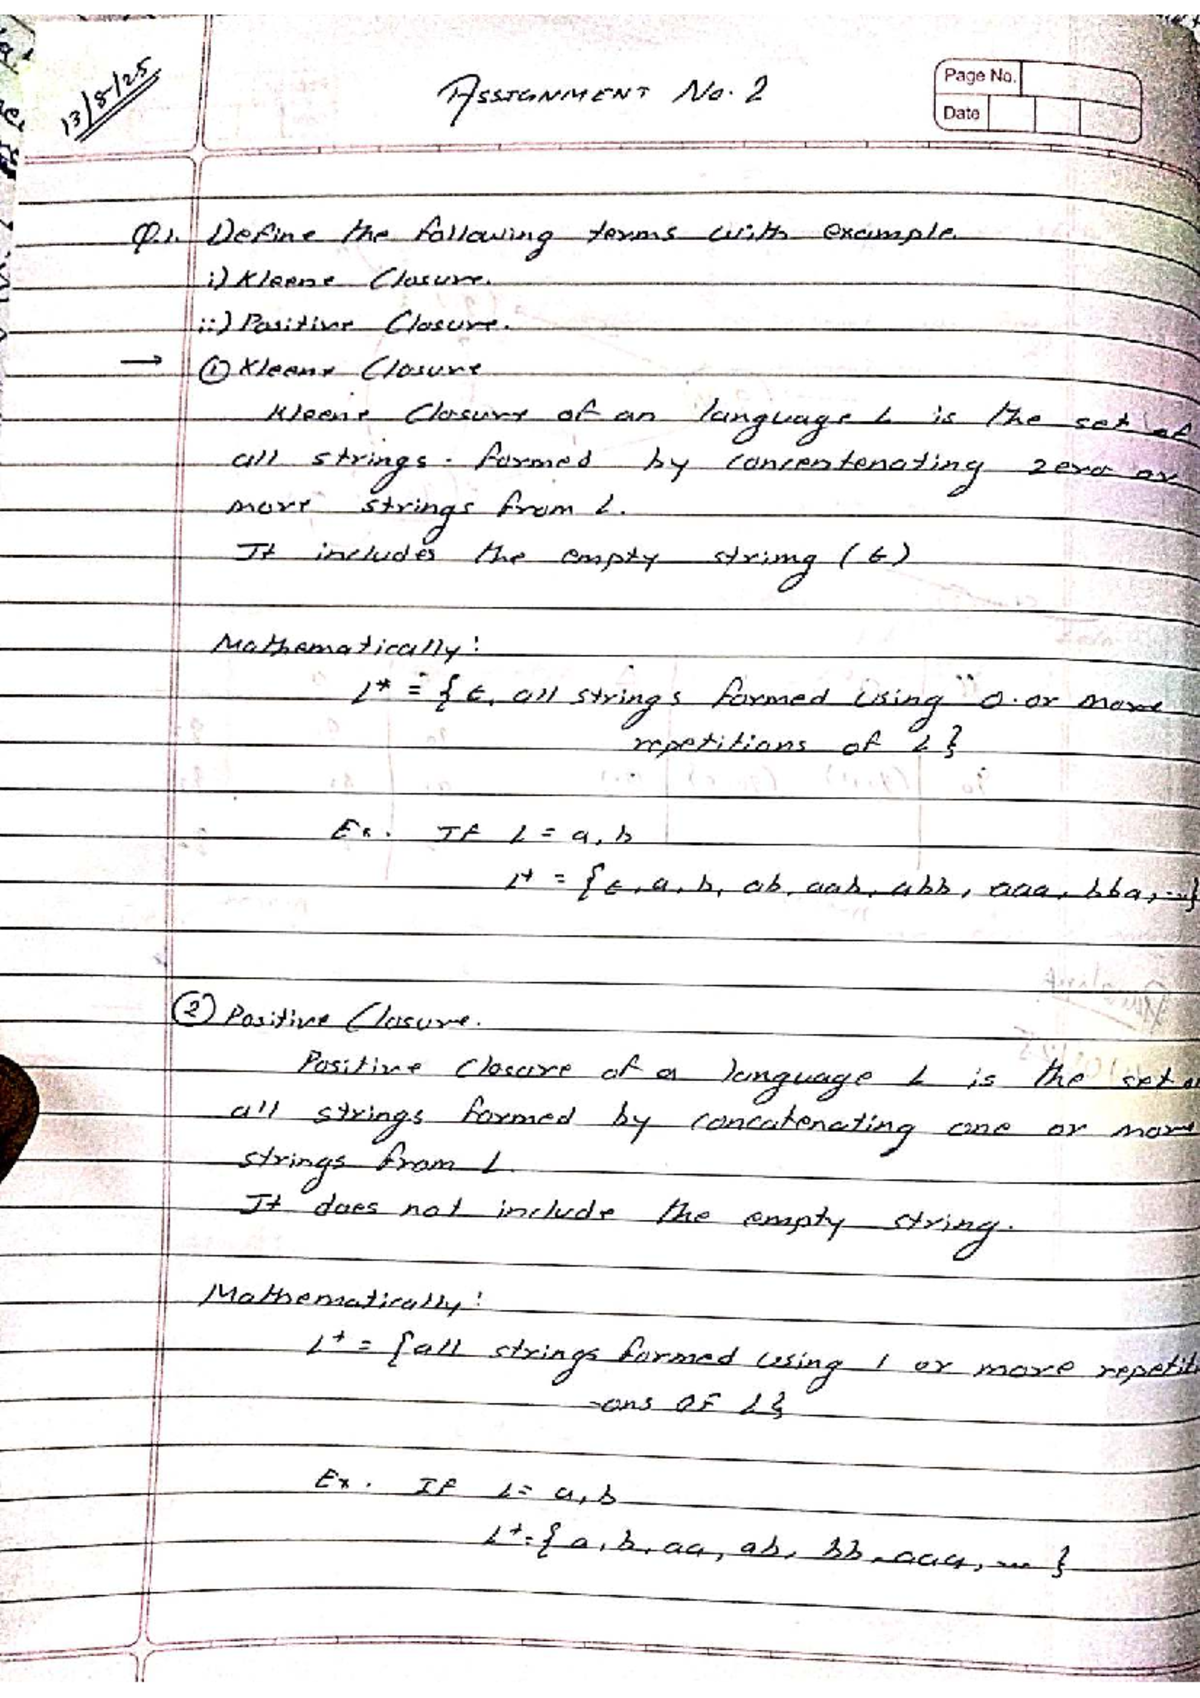 13/8/25
ASSIGNMENT No. 2
Page No.
Date
Q.1. Define the following terms with example.
i) Kleene Closure.
ii) Positive Closure.
→ ① Kleene Closure
Kleene Closure of an language L is the set of
all strings. formed by concentenating zero or
more strings from L.
It includes the empty string (ε)
Mathematically:
L* = { ε, all strings formed using 0 or more
repetitions of L}
Ex. If L = a, b
L* = {ε, a, b, ab, aab, abb, aaa, bba, ...}
② Positive Closure.
Positive Closure of a language L is the set
all strings formed by concatenating one or more
strings from L.
It does not include the empty string.
Mathematically:
L+ = {all strings formed using 1 or more repetiti
-ons OF L}
Ex. If L = a, b
L+ = { a, b, aa, ab, bb, aaa, ... }